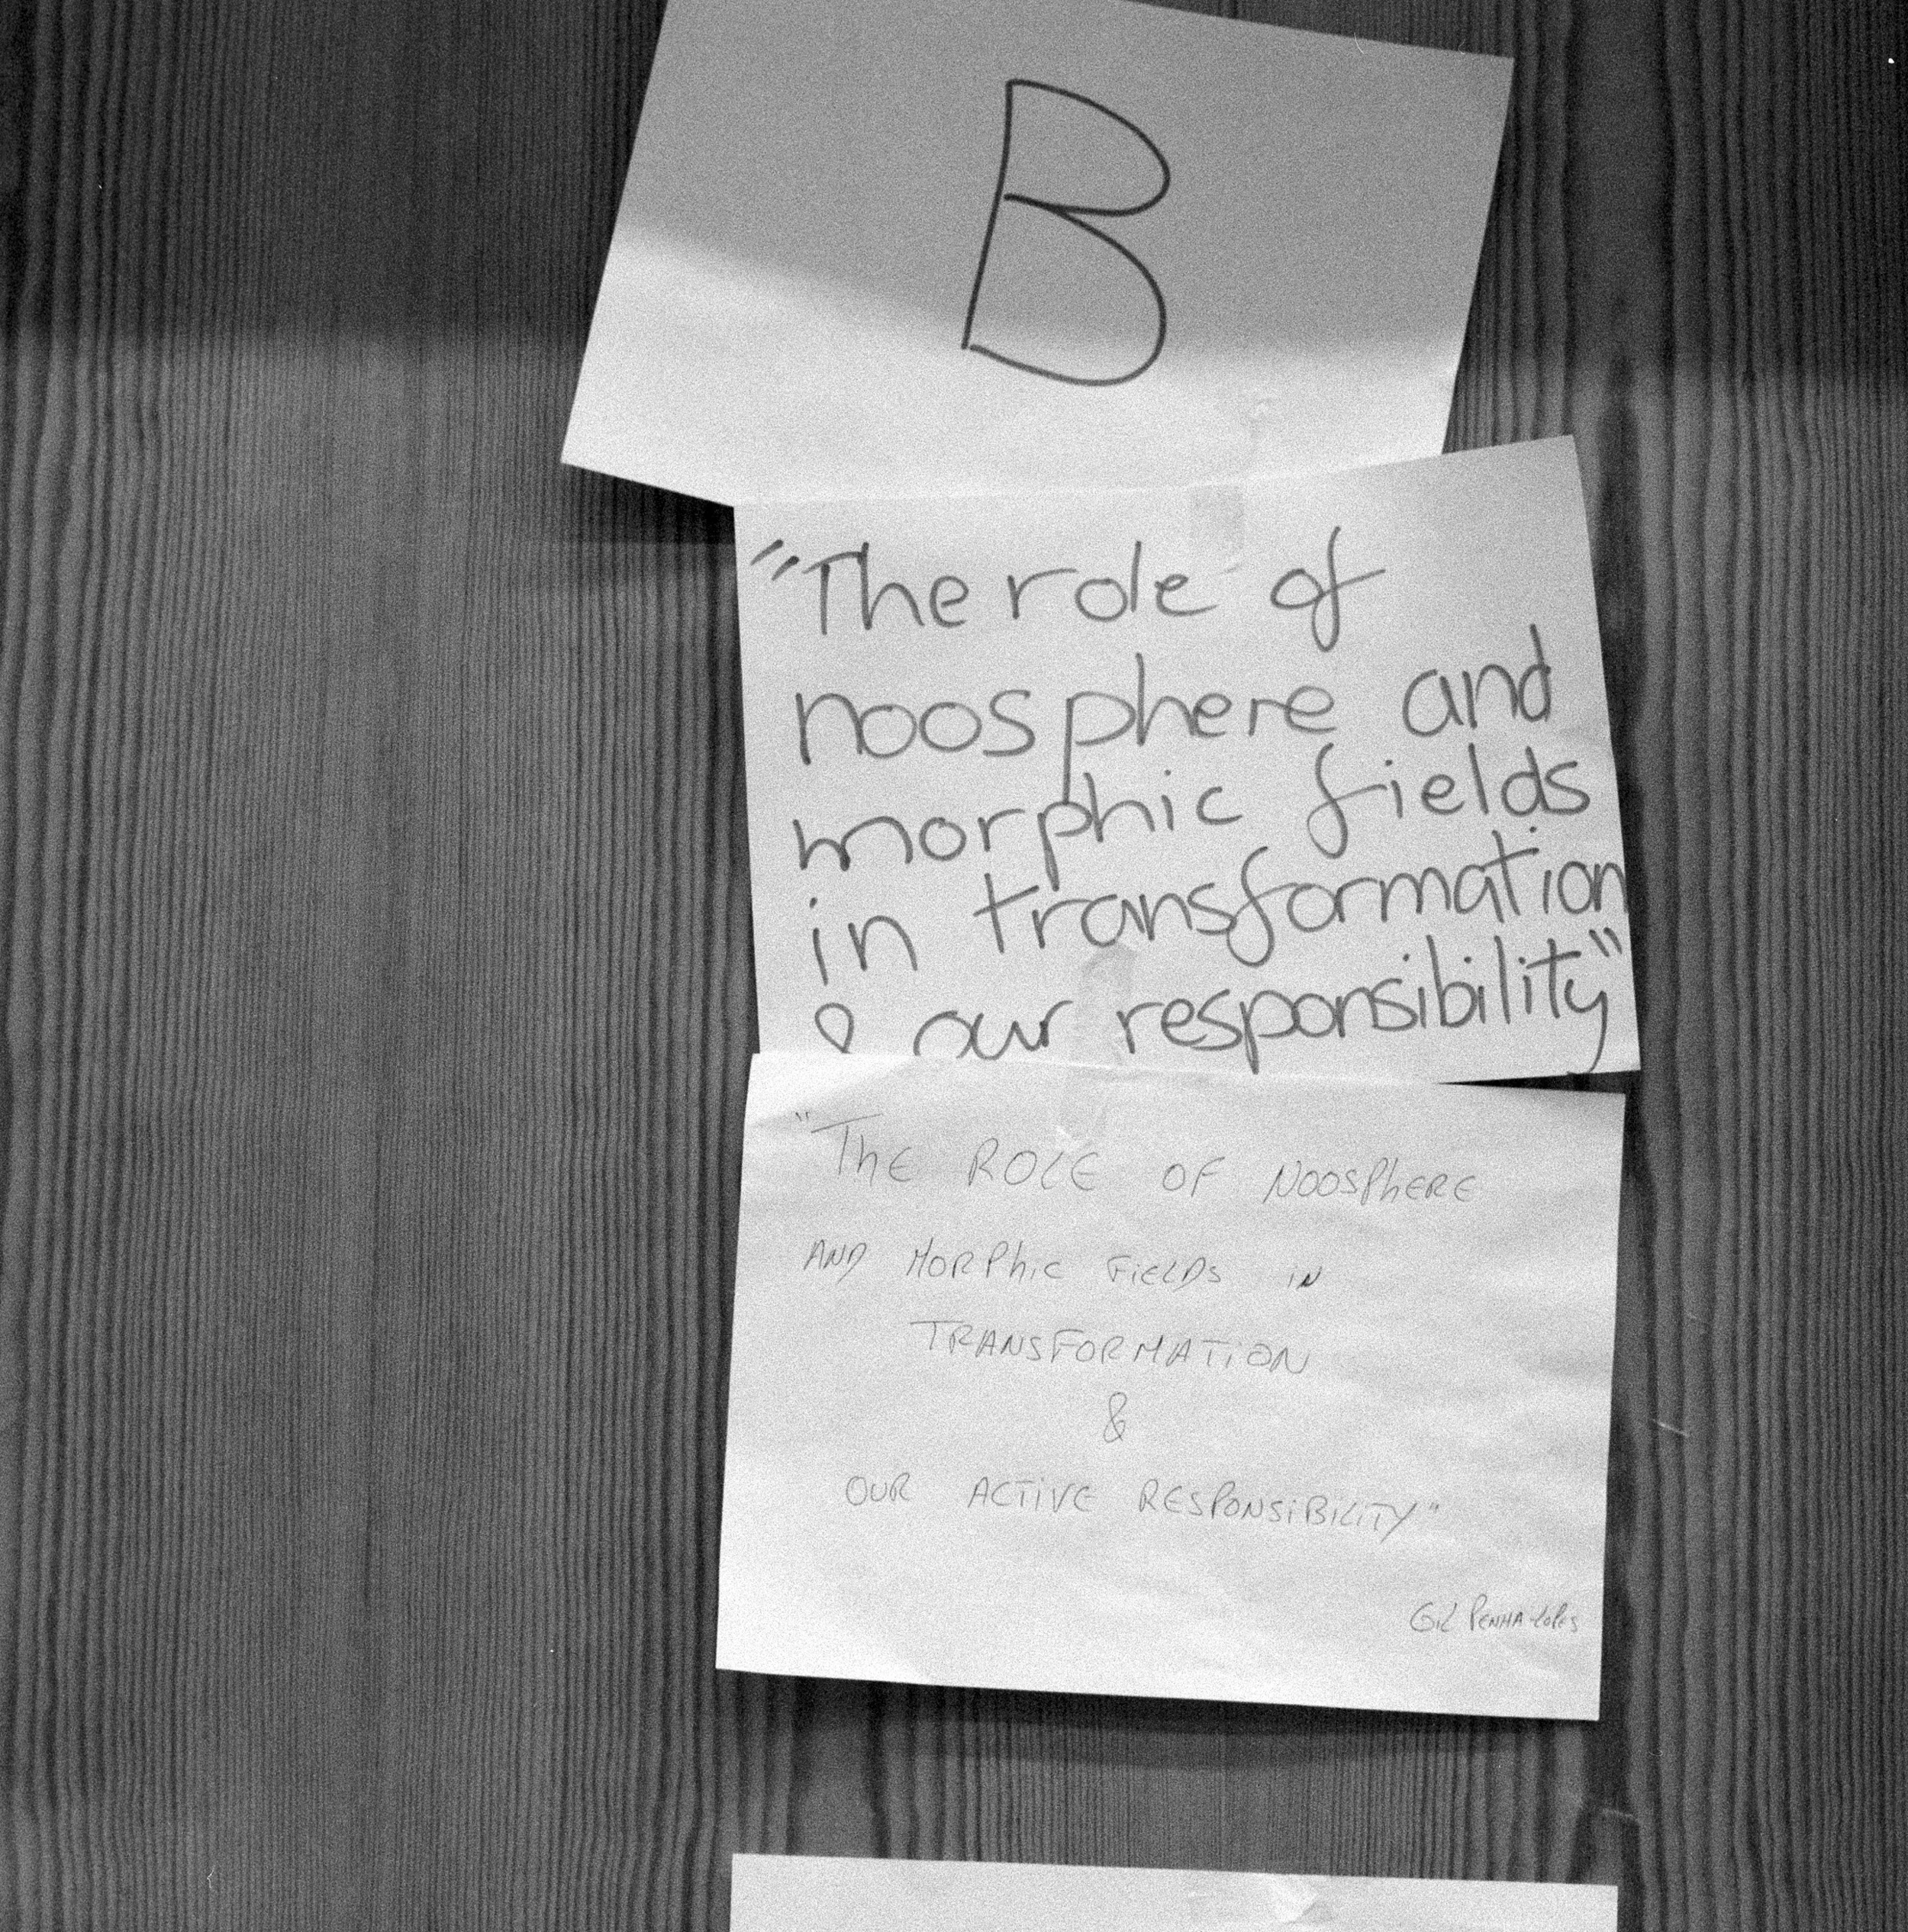 B
"The role of
noosphere and
morphic fields
in transformation
& our responsibility"
"ThE ROLE OF NOOSPhERE
AND MORPhiC FiELDS iN
TRANSFORMATiON
&
OUR ACTiVE RESPONSiBiLiTY"
GiL PENHA-LOPES